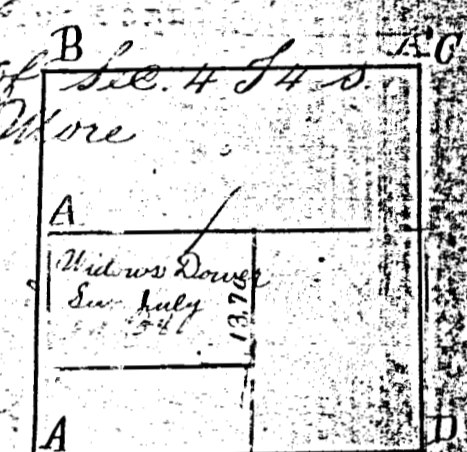 B C
of Sec. 4 T 4 S.
More
A
Widows Dower
Sur July
54
13.70
A D